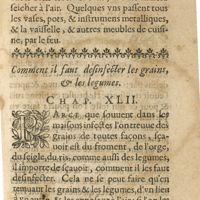 seicher à l'air. Quelques vns passent tous
les vases, pots, & instrumens metalliques,
& la vaisselle, & autres meubles de cuisi-
ne, par le feu.
Comment il faut desinfecter les grains,
& les legumes.
CHAP. XLII.
PARCE que souuent dans les
maisons infectes l'on treuue des
grains de toutes façons, sça-
uoir est du froment, de l'orge,
du seigle, du ris, comme aussi des legumes,
il importe de sçauoir, comment il les faut
desinfecter. Cela ne se peut faire, qu'en
remuant les grains & les legumes, d'vn lieu